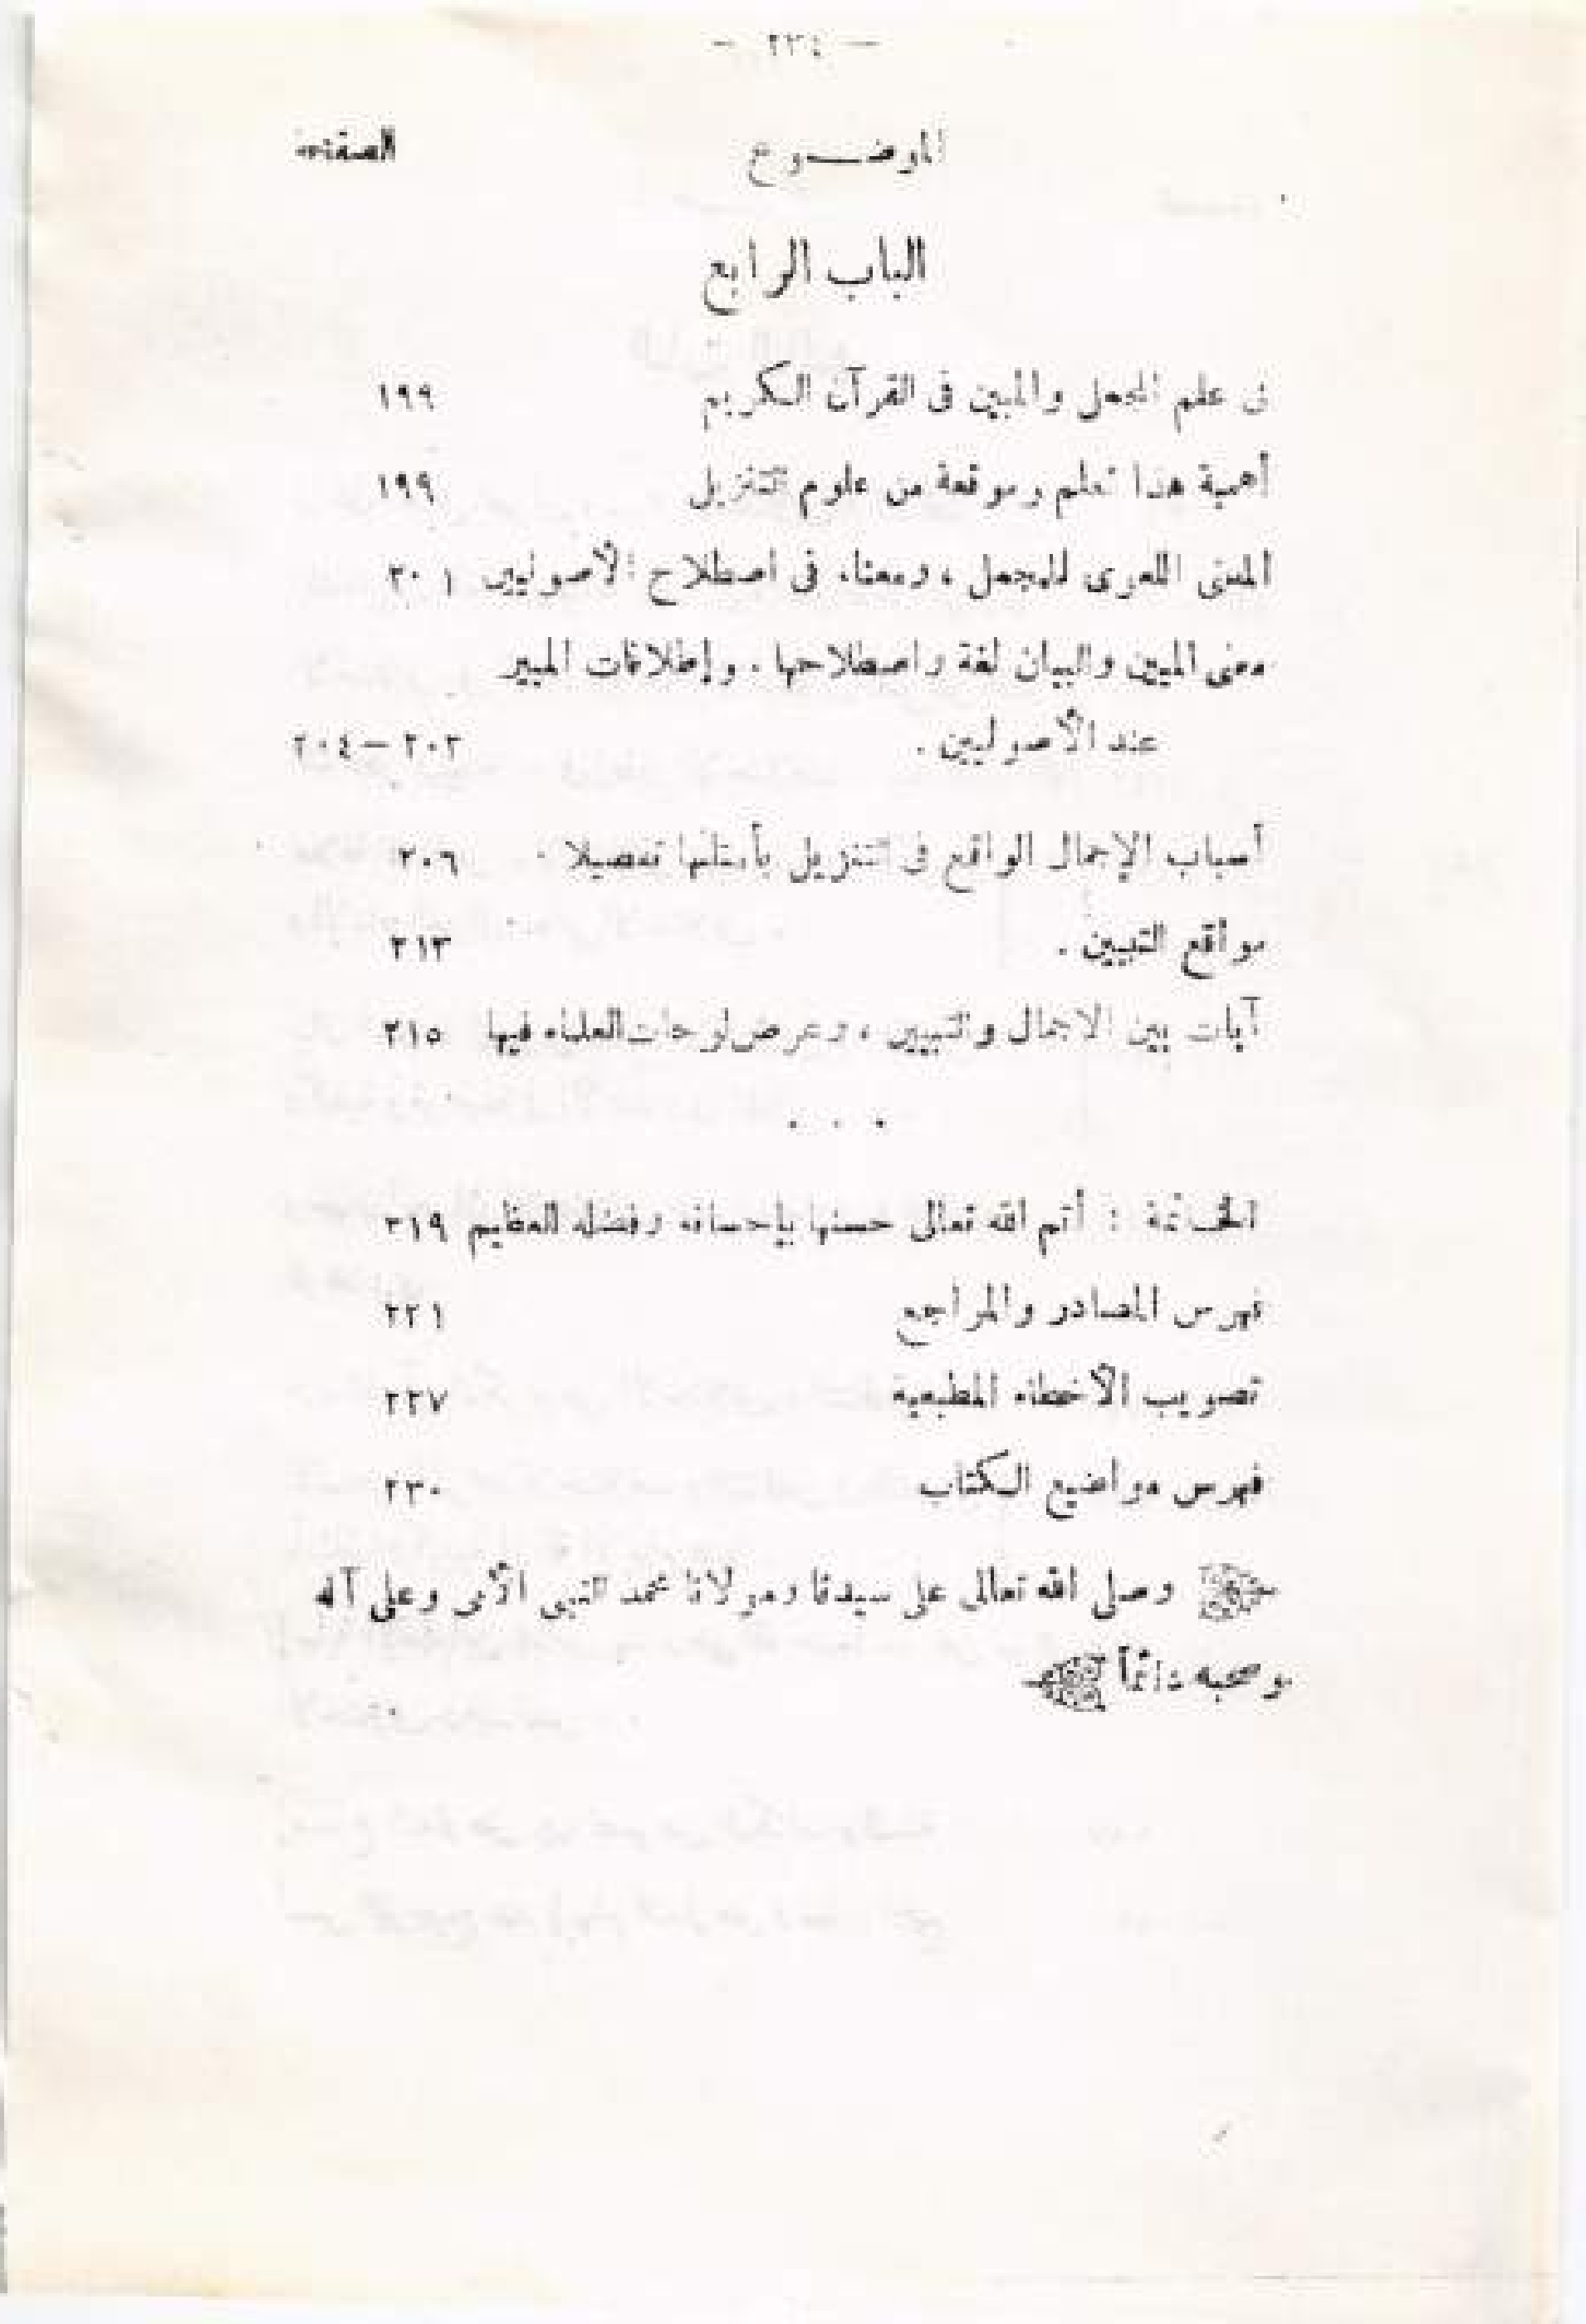 - ٢٣٤ -
الموضـــوع الصفحة
الباب الرابع
فى علم المجمل والمبين فى القرآن الكريم ١٩٩
أهمية هذا العلم وموقعة من علوم التنزيل ١٩٩
المعنى اللغوى للمجمل ، ومعناه فى اصطلاح الأصوليين ٢٠١
معنى المبين والبيان لغة واصطلاحها . وإطلاقات المبين
عند الأصوليين . ٢٠٢ - ٢٠٤
أسباب الإجمال الواقع فى التنزيل بأمثلتها تفصيلا . ٢٠٦
مواقع التبيين . ٢١٣
آيات بين الاجمال والتبيين ، وعرض لوحات العلماء فيها ٢١٥
. . .
الخـاتمة : أتم الله تعالى حسنها بإحسانه وفضله العظيم ٢١٩
فهرس المصادر والمراجع ٢٢١
تصويب الأخطاء المطبعية ٢٢٧
فهرس مواضيع الكتاب ٢٣٠
وصلى الله تعالى على سيدنا ومولانا محمد النبى الأمى وعلى آله
وصحبه دائماً